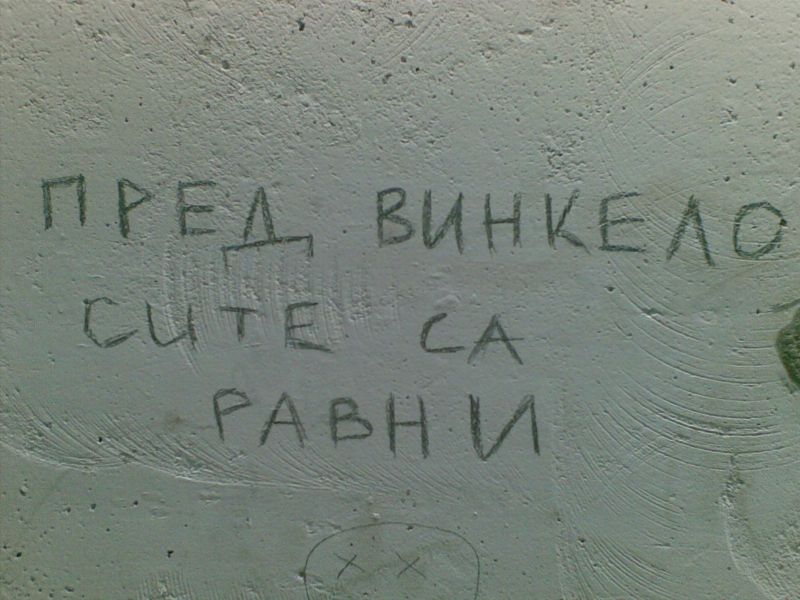 ПРЕД ВИНКЕЛО
СИТЕ СА
РАВНИ